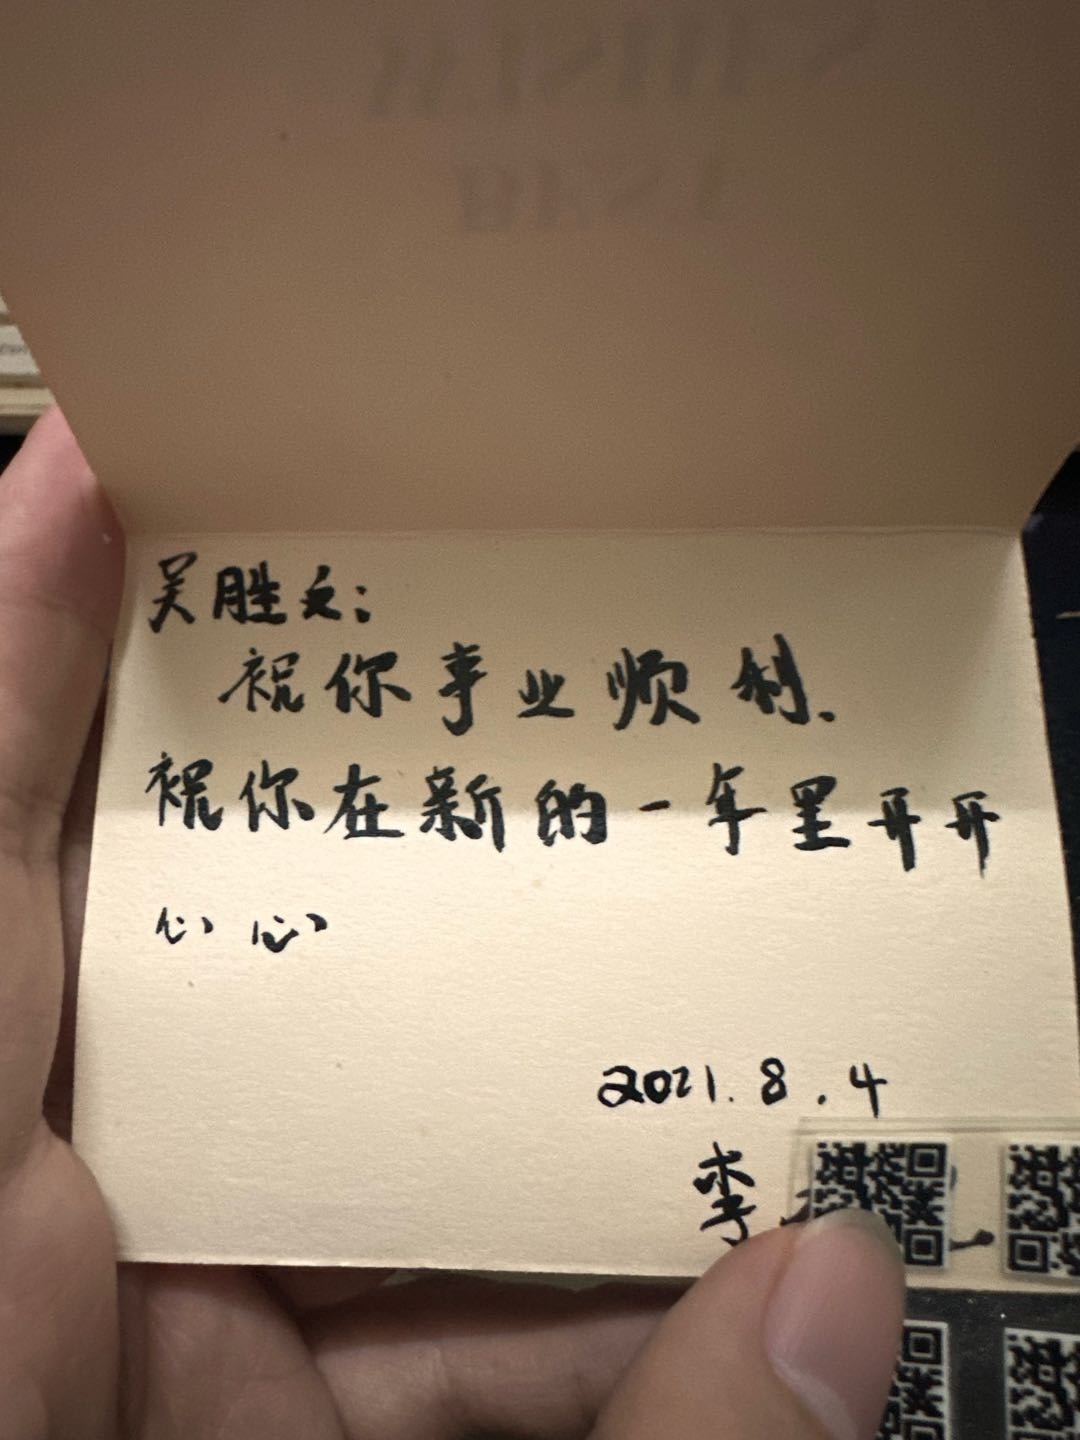 吴胜文:
祝你事业顺利.
祝你在新的一年里开开
心心
2021.8.4
李